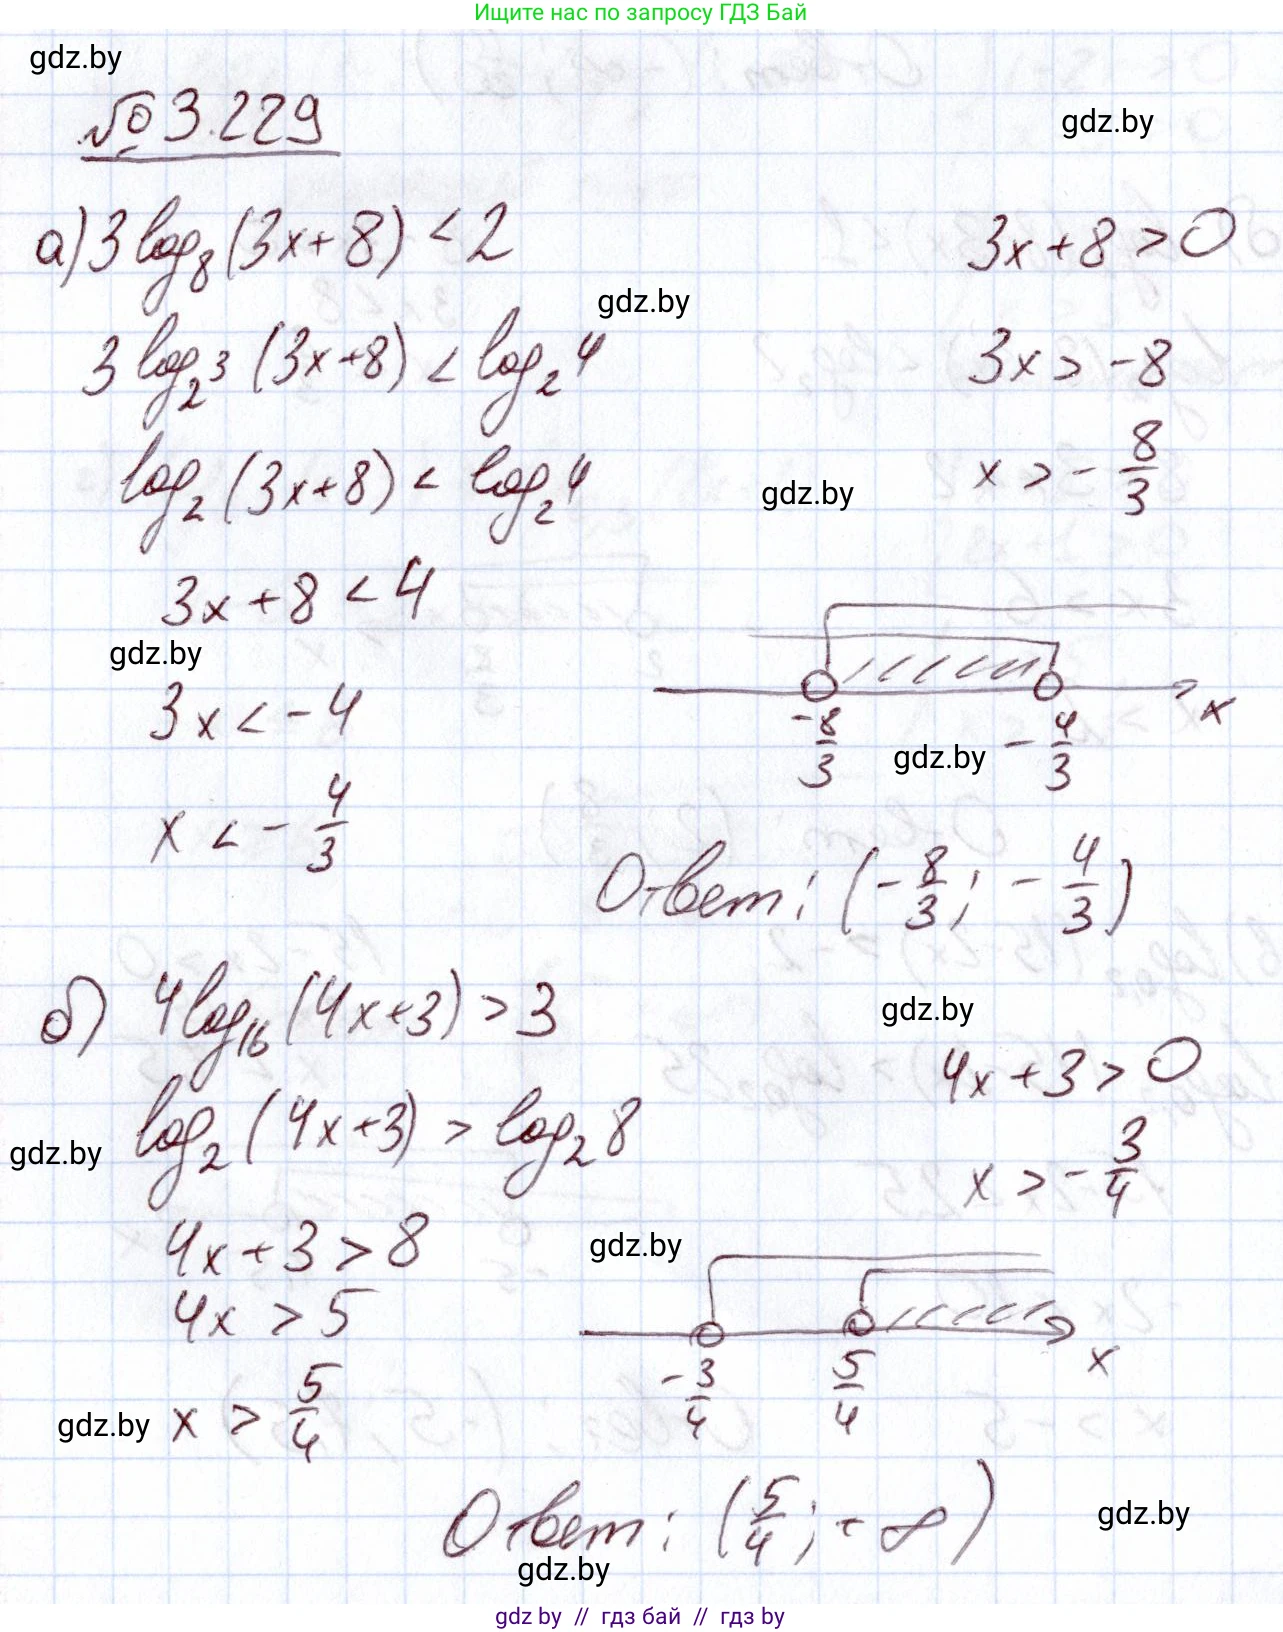 Ищите нас по запросу ГДЗ Бай
gdz.by
№ 3.229
gdz.by
а) 3 log₈ (3x+8) < 2
3x+8 > 0
gdz.by
3 log₂³ (3x+8) < log₂ 4
3x > -8
log₂ (3x+8) < log₂ 4
gdz.by
x > - 8/3
3x+8 < 4
gdz.by
3x < -4
x
- 8/3
gdz.by
- 4/3
x < - 4/3
Ответ: (- 8/3; - 4/3)
б) 4 log₁₆ (4x+3) > 3
gdz.by
4x+3 > 0
gdz.by
log₂ (4x+3) > log₂ 8
x > - 3/4
4x+3 > 8
gdz.by
4x > 5
x
- 3/4
5/4
gdz.by
x > 5/4
Ответ: (5/4; +∞)
gdz.by
gdz.by
gdz by // гдз бай // гдз by